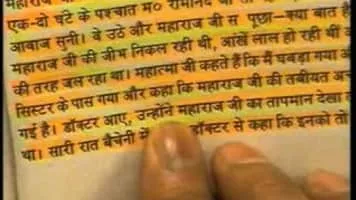 एक-दो घंटे के पश्चात म० रामानंद
महाराज जी स पूछा-क्या बात है
आवाज सुनी। वे उठे और
महाराज जी की जीभ निकल रही थी, आंखें लाल हो रही थीं
की तरह जल रहा था। महात्मा जी कहते हैं कि मैं घबड़ा गया
सिस्टर के पास गया और कहा कि महाराज जी की तबीयत
गई है। डॉक्टर आए, उन्होंने महाराज जी का तापमान देखा
था। सारी रात बैचेनी में डॉक्टर से कहा कि इनको तो